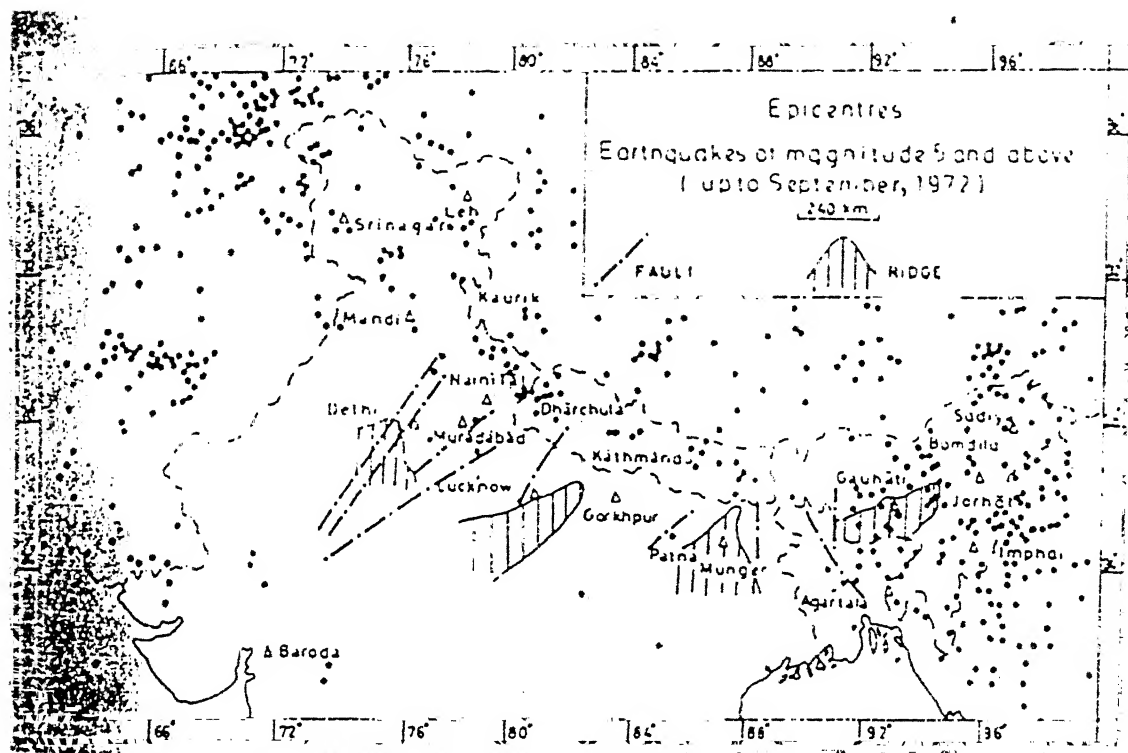 66° 72° 76° 80° 84° 88° 92° 96°
Epicentres
Earthquakes of magnitude 5 and above
( up to September, 1972 )
240 km
FAULT
RIDGE
Srinagar
Leh
Kaurik
Mandi
Naini Tal
Delhi
Dharchula
Muradabad
Kathmandu
Lucknow
Gorkhpur
Patna
Munger
Gauhati
Bomdila
Jorhat
Imphal
Agartala
Baroda
66° 72° 76° 80° 84° 88° 92° 96°